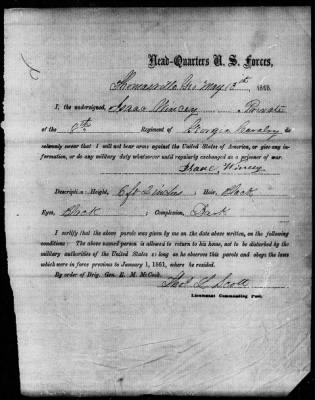 Head-Quarters U. S. Forces,
Thomasville Geo May 13th, 1865.
I, the undersigned, Isaac Wincey, Private
of the 8th Regiment of Georgia Cavalry do
solemnly swear that I will not bear arms against the United States of America, or give any in-
formation, or do any military duty whatsoever until regularly exchanged as a prisoner of war.
Isaac Wincey
Description: Height, 6 ft 2 inches Hair, Black
Eyes, Black ; Complexion, Dark
I certify that the above parole was given by me on the date above written, on the following
conditions: The above named person is allowed to return to his home, not to be disturbed by the
military authorities of the United States so long as he observes this parole and obeys the laws
which were in force previous to January 1, 1861, where he resided.
By order of Brig. Gen. E. M. McCook.
Scott
Lieutenant Commanding Post.